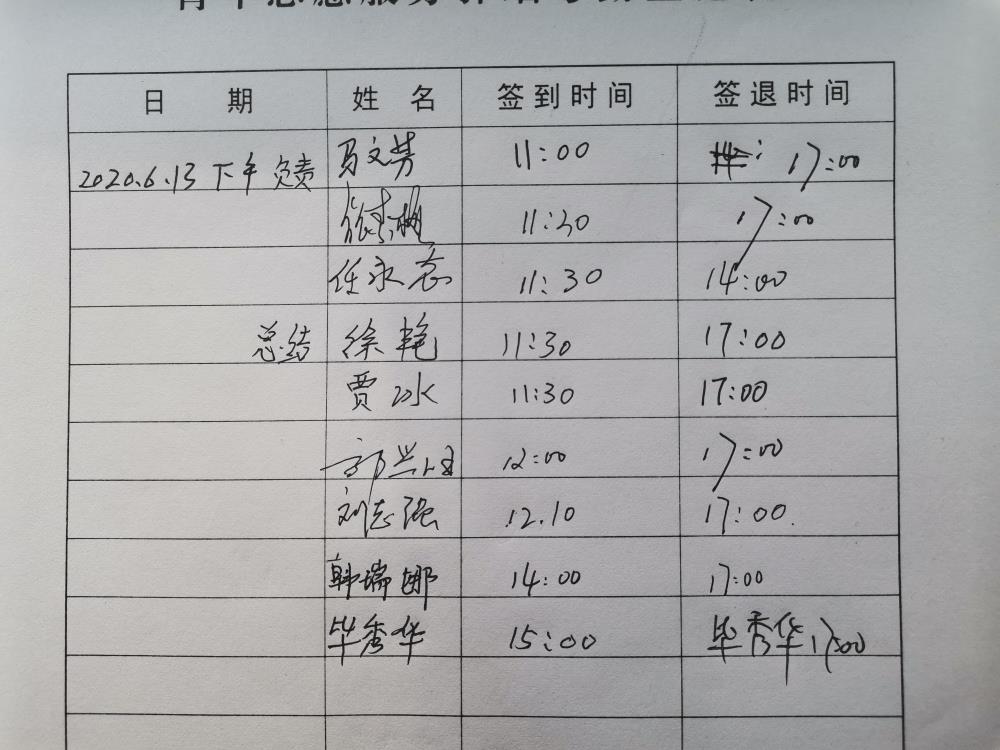 日 期 姓 名 签到时间 签退时间
2020.6.13 下午 负责 马文芳 11:00 17:00
11:30 17:00
任永志 11:30 14:00
总结 徐艳 11:30 17:00
贾冰 11:30 17:00
12:00 17:00
刘志强 12.10 17:00.
韩瑞娜 14:00 17:00
毕秀华 15:00 毕秀华 17:00